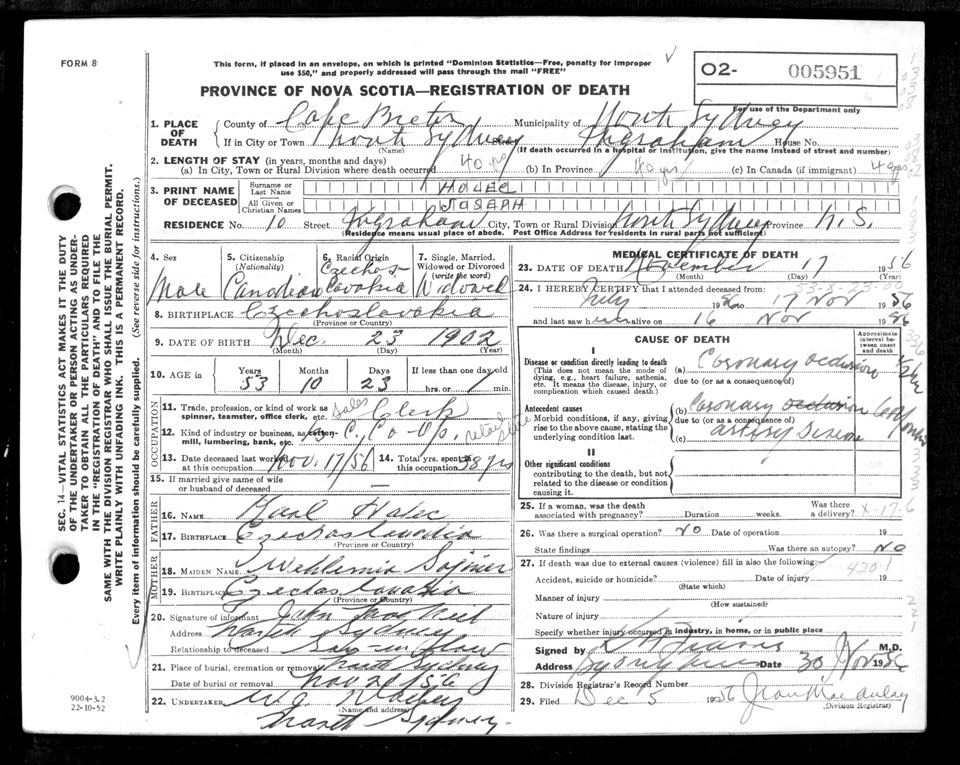 FORM 8
This form, if placed in an envelope, on which is printed "Dominion Statistics—Free, penalty for improper
use $50," and properly addressed will pass through the mail "FREE"
O2- 005951
For use of the Department only
PROVINCE OF NOVA SCOTIA—REGISTRATION OF DEATH
1. PLACE OF DEATH
County of Cape Breton Municipality of North Sydney
If in City or Town North Sydney Ingraham House No.
(Name) (If death occurred in a hospital or institution, give the name instead of street and number)
2. LENGTH OF STAY (in years, months and days)
(a) In City, Town or Rural Division where death occurred 40 yrs (b) In Province 40 yrs (c) In Canada (if immigrant) 40 yrs
3. PRINT NAME OF DECEASED
Surname or Last Name HOLEC
All Given or Christian Names JOSEPH
RESIDENCE No. 10 Street Ingraham City, Town or Rural Division North Sydney Province N.S.
(Residence means usual place of abode. Post Office Address for residents in rural parts not sufficient)
4. Sex 5. Citizenship (Nationality) 6. Racial Origin 7. Single, Married, Widowed or Divorced (write the word)
Male Canadian Czechoslovakia Widowed
8. BIRTHPLACE Czechoslovakia
(Province or Country)
9. DATE OF BIRTH Dec. 23 1902
(Month) (Day) (Year)
10. AGE in Years Months Days If less than one day old
53 10 23 hrs. or min.
OCCUPATION
11. Trade, profession, or kind of work as spinner, teamster, office clerk, etc. sales Clerk
12. Kind of industry or business, as cotton-mill, lumbering, bank, etc. Co-Op. retail store
13. Date deceased last worked at this occupation Nov. 17/56 14. Total yrs. spent in this occupation 38 yrs
15. If married give name of wife or husband of deceased
FATHER
16. NAME Karl Holec
17. BIRTHPLACE Czechoslovakia
(Province or Country)
MOTHER
18. MAIDEN NAME
19. BIRTHPLACE Czechoslovakia
(Province or Country)
20. Signature of informant John MacNeil
Address North Sydney
Relationship to deceased Son-in-law
21. Place of burial, cremation or removal North Sydney
Date of burial or removal Nov 20/56
22. UNDERTAKER W.J.
(Name and address)
North Sydney.
MEDICAL CERTIFICATE OF DEATH
23. DATE OF DEATH November 17 1956
(Day) (Year)
24. I HEREBY CERTIFY that I attended deceased from
July 1956 to 17 Nov 1956
and last saw him alive on 16 Nov 1956
CAUSE OF DEATH
Approximate interval between onset and death
I
Disease or condition directly leading to death
(This does not mean the mode of dying, e.g., heart failure, asthenia, etc. It means the disease, injury, or complication which caused death.)
(a) Coronary occlusion
due to (or as a consequence of)
Antecedent causes
Morbid conditions, if any, giving rise to the above cause, stating the underlying condition last.
(b) Coronary occlusion
due to (or as a consequence of)
(c) artery disease
II
Other significant conditions
contributing to the death, but not related to the disease or condition causing it.
25. If a woman, was the death associated with pregnancy? Duration weeks. Was there a delivery?
26. Was there a surgical operation? NO Date of operation 19
State findings Was there an autopsy? NO
27. If death was due to external causes (violence) fill in also the following:
420.1
Accident, suicide or homicide? Date of injury 19
(State which)
Manner of injury
(How sustained)
Nature of injury
Specify whether injury occurred in industry, in home, or in public place
Signed by M.D.
Address Sydney Mines Date 30 Nov 1956
28. Division Registrar's Record Number
29. Filed Dec 5 1956 Jean MacAulay
(Division Registrar)
SEC. 14—VITAL STATISTICS ACT MAKES IT THE DUTY
OF THE UNDERTAKER OR PERSON ACTING AS UNDER-
TAKER TO OBTAIN ALL THE PARTICULARS REQUIRED
IN THE "REGISTRATION OF DEATH" AND TO FILE THE
SAME WITH THE DIVISION REGISTRAR WHO SHALL ISSUE THE BURIAL PERMIT.
WRITE PLAINLY WITH UNFADING INK. THIS IS A PERMANENT RECORD.
Every item of information should be carefully supplied. (See reverse side for instructions.)
9004-3.2
22-10-52